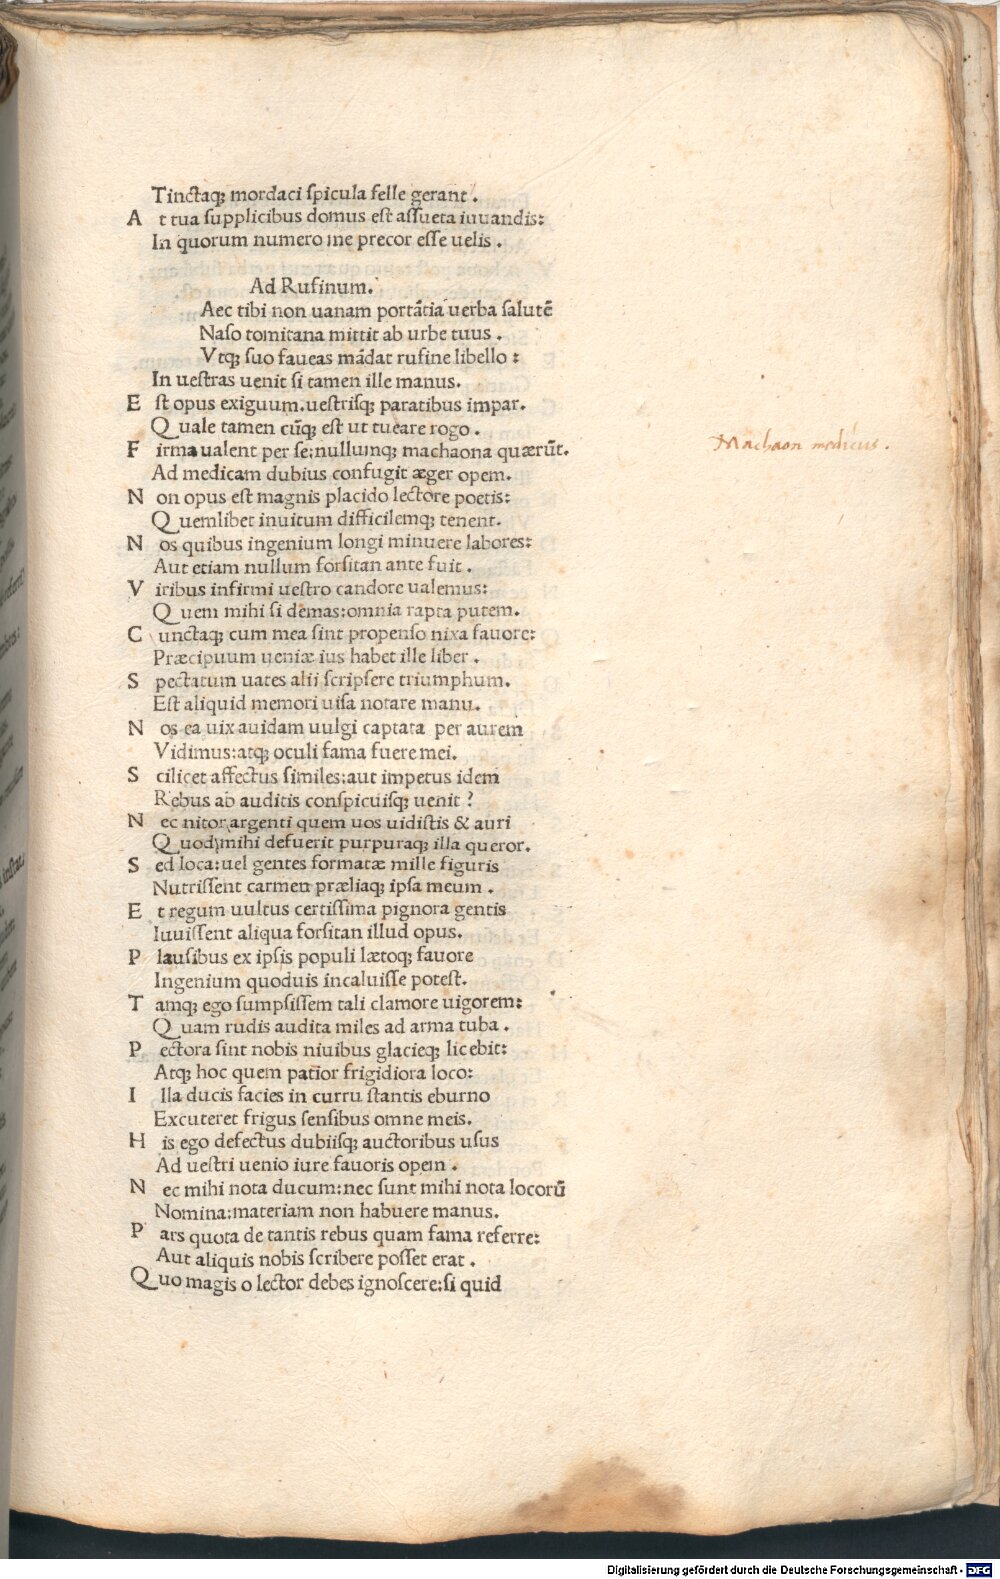 Tinctaq; mordaci spicula felle gerant.
A t tua supplicibus domus est assueta iuuandis:
In quorum numero me precor esse uelis.
Ad Rufinum.
Aec tibi non uanam portãtia uerba salutẽ
Naso tomitana mittit ab urbe tuus.
Vtq; suo faueas mãdat rufine libello:
In uestras uenit si tamen ille manus.
E st opus exiguum.uestrisq; paratibus impar.
Quale tamen cũq; est ut tueare rogo.
F irma ualent per se:nullumq; machaona quærũt.
Machaon medicus.
Ad medicam dubius confugit æger opem.
N on opus est magnis placido lectore poetis:
Quemlibet inuitum difficilemq; tenent.
N os quibus ingenium longi minuere labores:
Aut etiam nullum forsitan ante fuit.
V iribus infirmi uestro candore ualemus:
Quem mihi si demas:omnia rapta putem.
C unctaq; cum mea sint propenso nixa fauore:
Præcipuum ueniæ ius habet ille liber.
S pectatum uates alii scripsere triumphum.
Est aliquid memori uisa notare manu.
N os ea uix auidam uulgi captata per aurem
Vidimus:atq; oculi fama fuere mei.
S cilicet affectus similes:aut impetus idem
Rebus ab auditis conspicuisq; uenit?
N ec nitor argenti quem uos uidistis & auri
Quod mihi defuerit purpuraq; illa queror.
S ed loca:uel gentes formatæ mille figuris
Nutrissent carmen præliaq; ipsa meum.
E t regum uultus certissima pignora gentis
Iuuissent aliqua forsitan illud opus.
P lausibus ex ipsis populi lætoq; fauore
Ingenium quoduis incaluisse potest.
T amq; ego sumpsissem tali clamore uigorem:
Quam rudis audita miles ad arma tuba.
P ectora sint nobis niuibus glacieq; licebit:
Atq; hoc quem patior frigidiora loco:
I lla ducis facies in curru stantis eburno
Excuteret frigus sensibus omne meis.
H is ego defectus dubiisq; auctoribus usus
Ad uestri uenio iure fauoris opem.
N ec mihi nota ducum:nec sunt mihi nota locorũ
Nomina:materiam non habuere manus.
P ars quota de tantis rebus quam fama referre:
Aut aliquis nobis scribere posset erat.
Quo magis o lector debes ignoscere:si quid
Digitalisierung gefördert durch die Deutsche Forschungsgemeinschaft - DFG